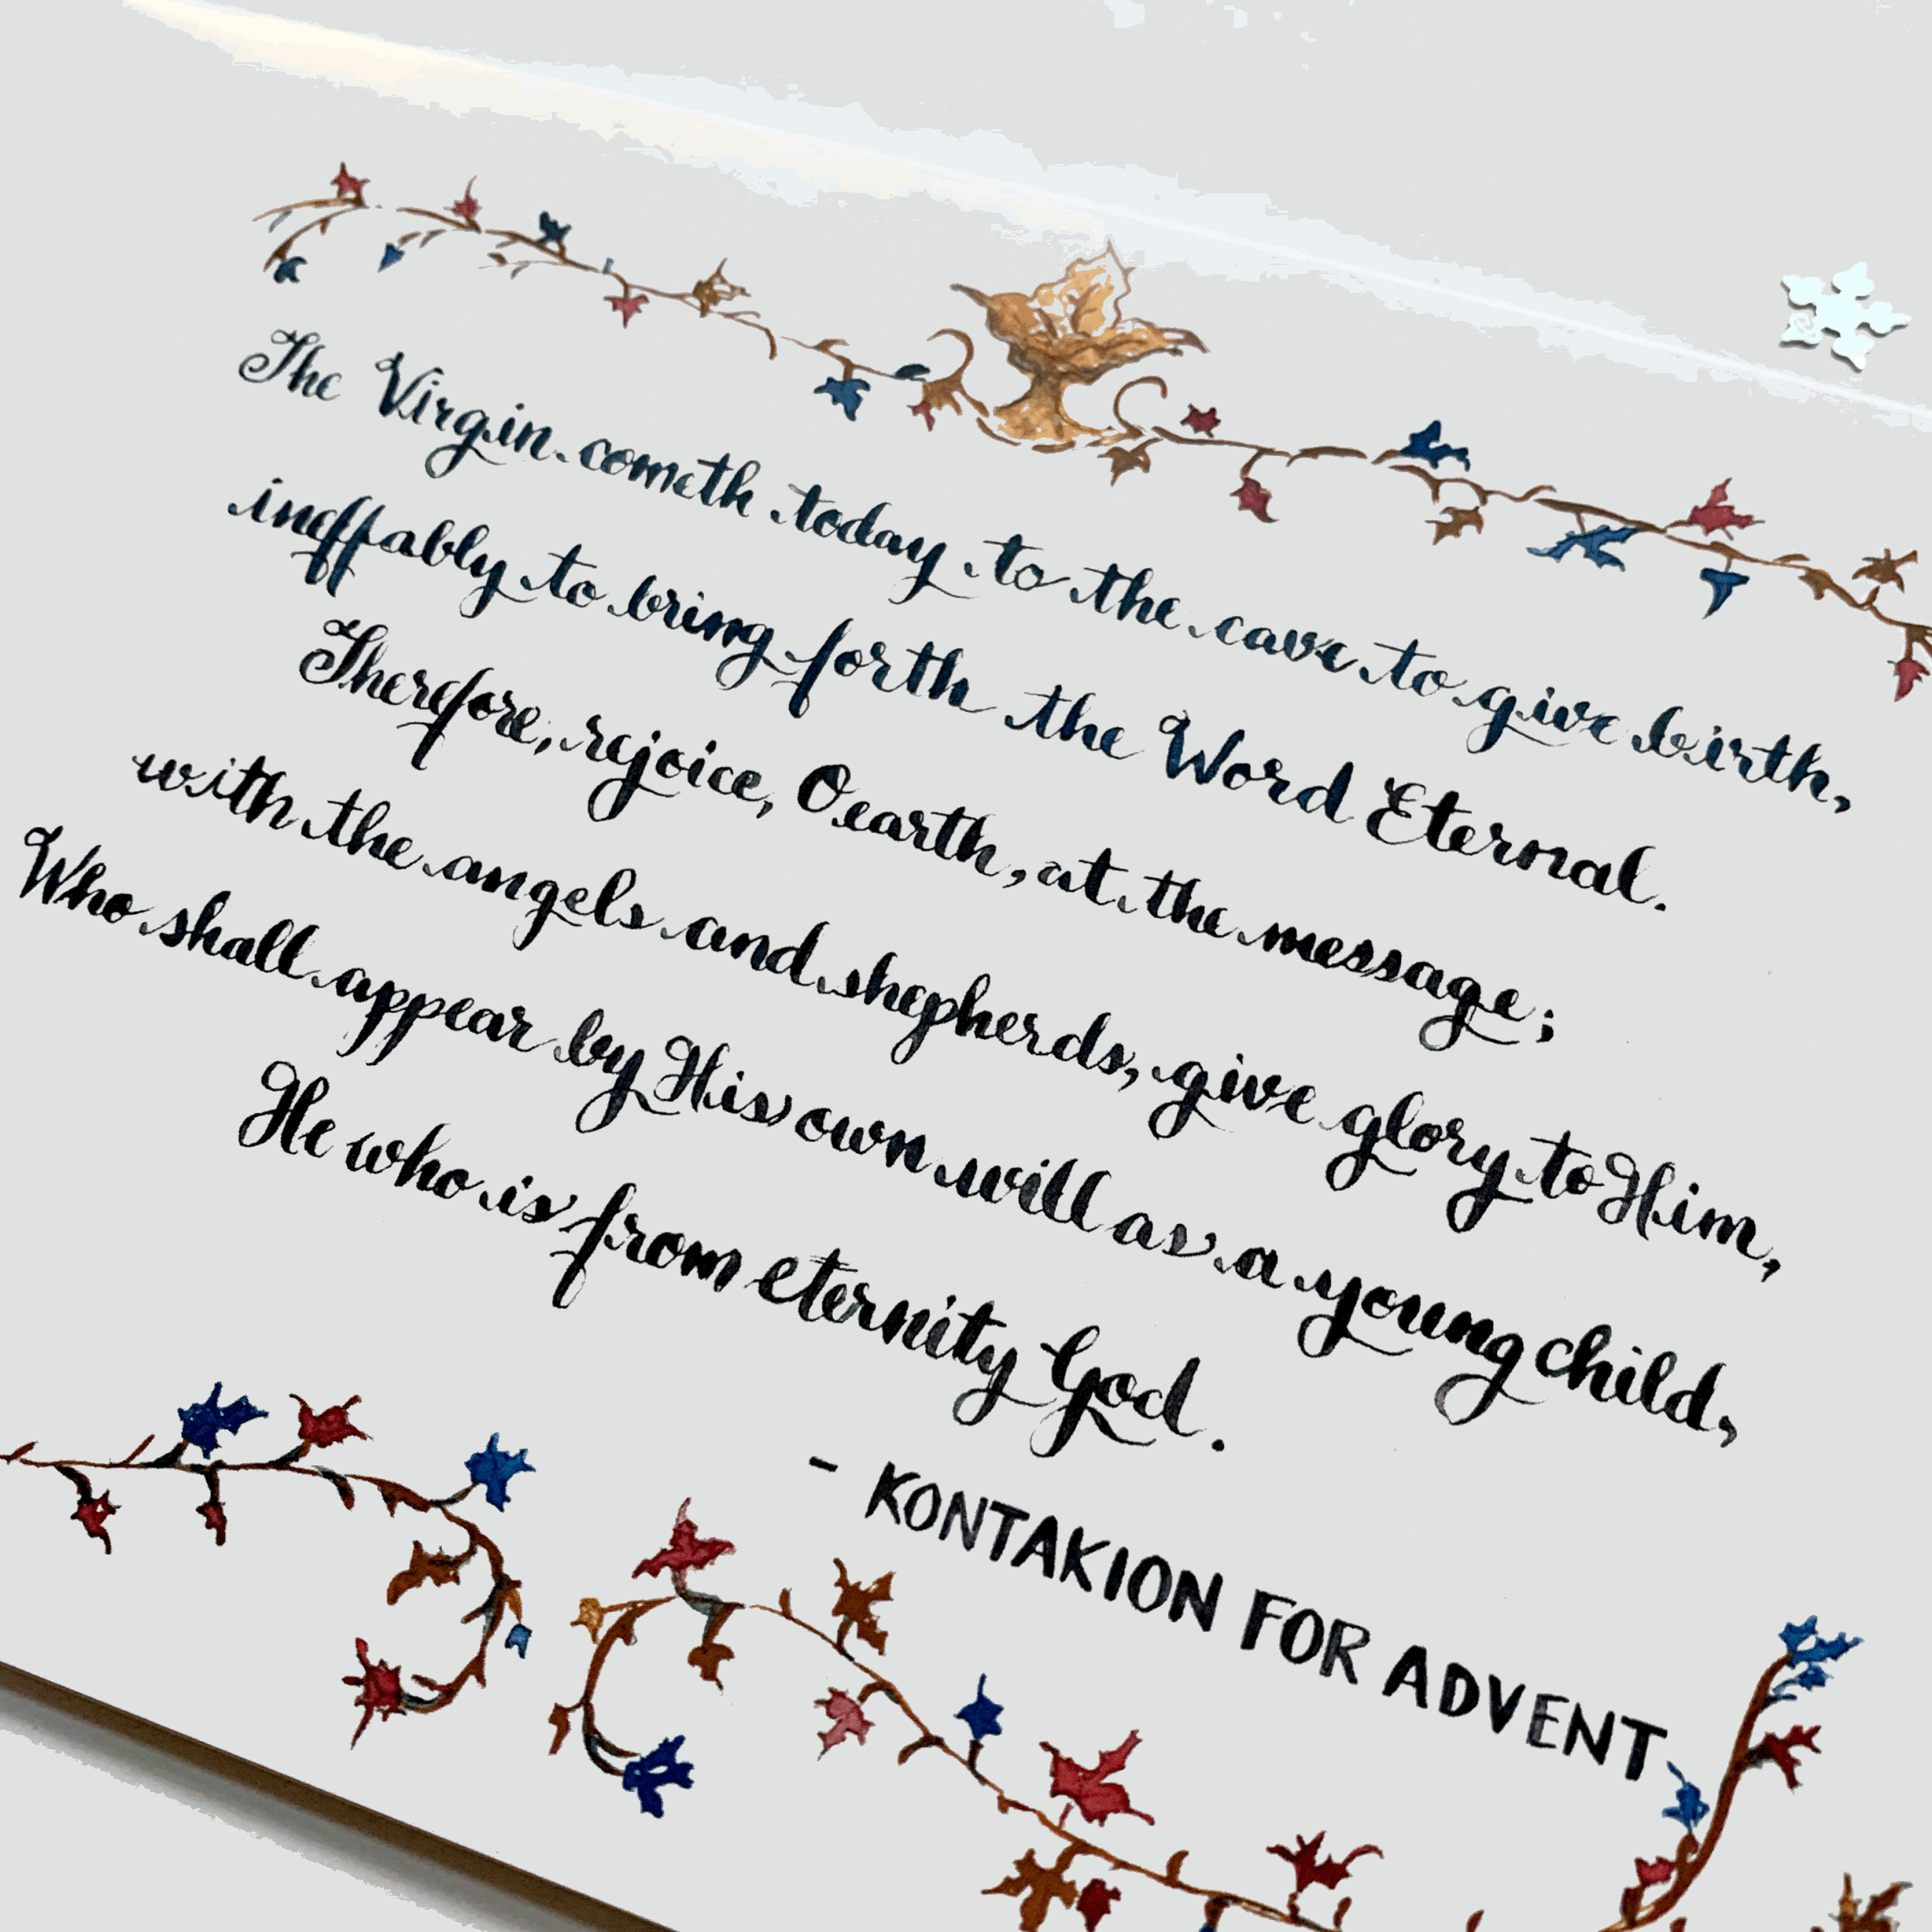 The Virgin cometh today to the cave to give birth,
ineffably to bring forth the Word Eternal.
Therefore, rejoice, O earth, at the message;
with the angels and shepherds, give glory to Him,
Who shall appear by His own will as a young child,
He who is from eternity God.
- KONTAKION FOR ADVENT